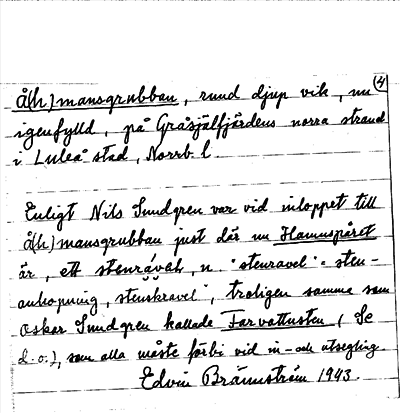 (4)
å(h)mansgrubban, rund djup vik, nu
igenfylld, på Gråsjälfjärdens norra strand
i Luleå stad, Norrb. l.
Enligt Nils Sundgren var vid inloppet till
å(h)mansgrubban just där nu Hamnspåret
är, ett stenrávėl, n. "stenravel" = sten-
anhopning, "stenskravel", troligen samma som
Oskar Sundgren kallade Farvattusten (Se
d. o.), som alla måste förbi vid in- och utsegling
Edvin Brännström 1943.